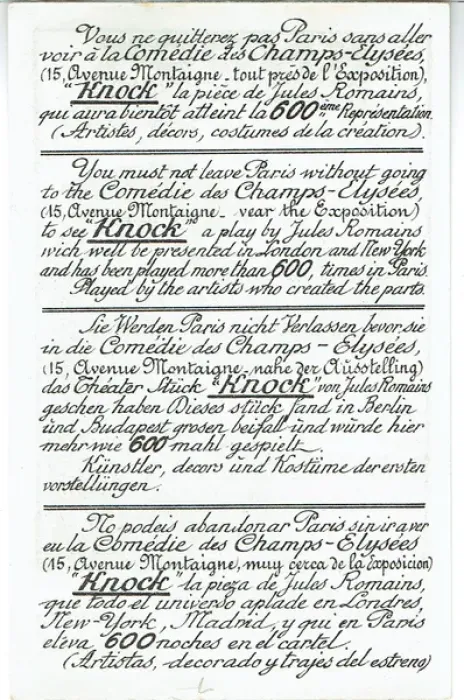 Vous ne quitterez pas Paris sans aller
voir à la Comédie des Champs-Elysées,
(15, Avenue Montaigne - tout près de l'Exposition),
"Knock" la pièce de Jules Romains,
qui aura bientôt atteint la 600ème Représentation.
(Artistes, décors, costumes de la création).
You must not leave Paris without going
to the Comédie des Champs-Elysées,
(15, Avenue Montaigne - vear the Exposition)
to see "Knock" a play by Jules Romains
wich well be presented in London and New York
and has been played more than 600, times in Paris.
Played by the artists who created the parts.
Sie Werden Paris nicht Verlassen bevor sie
in die Comédie des Champs - Elysées,
(15, Avenue Montaigne - nahe der Ausstelling)
das Théater Stück "Knock" von Jules Romains
geschen haben Dieses stück fand in Berlin
und Budapest grosen beifall und würde hier
mehr wie 600 mahl gespielt.
Künstler, decors und Kostüme der ersten
vorstellüngen.
No podeis abandonar Paris sin ir a ver
eu la Comédie des Champs-Elysées
(15, Avenue Montaigne, muy cerca de la Exposicion)
"Knock" la pieza de Jules Romains,
que todo el universo aplade en Londres,
New-York, Madrid, y qui en Paris
eleva 600 noches en el cartel.
(Artistas, decorado y trajes del estreno)